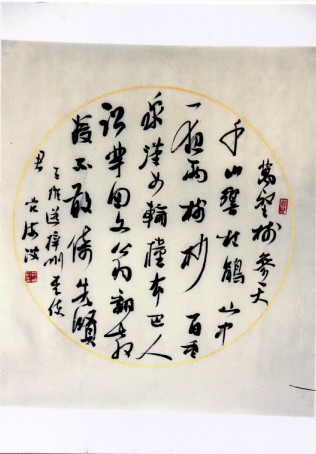 萬壑樹參天
千山響杜鵑山中
一夜雨樹杪百重
泉漢女輸橦布巴人
訟芋田文翁翻教
授不敢倚先賢
王維送梓州李使
君